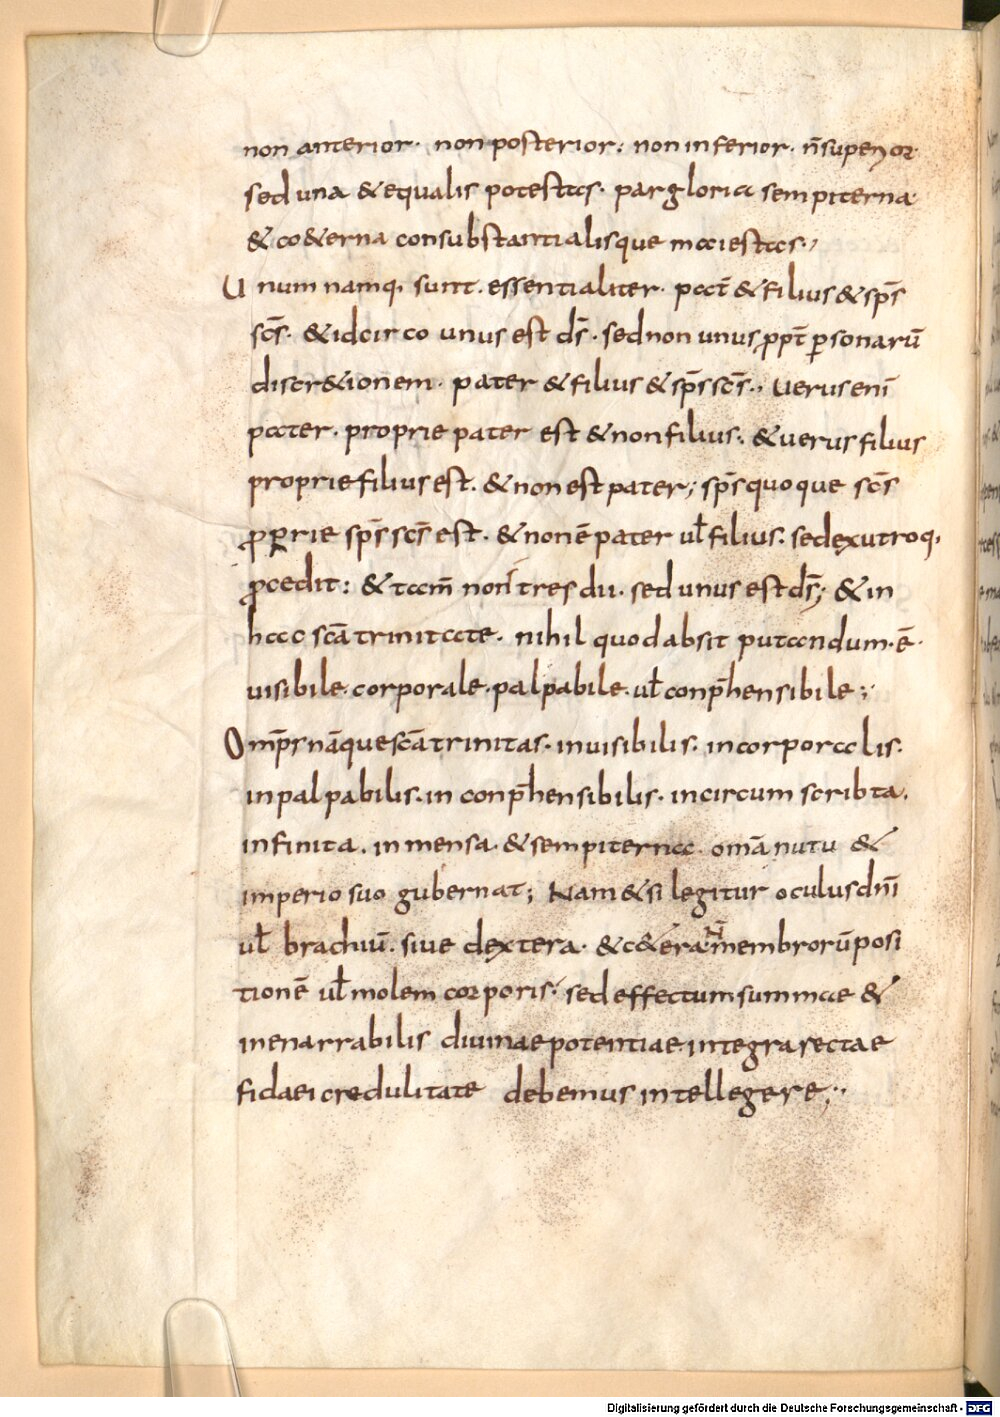 non anterior· non posterior· non inferior· n̄ superior·
sed una & equalis potestas· par gloria sempiterna·
& co&erna consubstantialisque maiestas·,
Unum namq, sunt· essentialiter· pat̄ & filius & sp̄s
sc̄s· & idcirco unus est d̄s· sed non unus ꝓpt̄ ꝑsonarū
discr&ionem· pater & filius & sp̄s sc̄s·, Uerus eni̅
pater· proprie pater est & non filius· & uerus filius
proprie filius est· & non est pater; sp̄s quoque sc̄s
ꝓprie sp̄s sc̄s est· & non ē pater ul̄ filius· sed ex utroq,
ꝓcedit: & tam̄ non tres dii· sed unus est d̄s; & in
hac sc̄a trinitate· nihil quod absit putandum· ē·
uisibile· corporale· palpabile· ul̄ conp̄hensibile;·
Omp̄s nāque sc̄a trinitas· inuisibilis· incorporalis·
inpalpabilis· inconp̄hensibilis· incircumscribta·
infinita· inmensa· & sempiterna· omā nutu &
imperio suo gubernat; Nam & si legitur oculus dn̄i
ul̄ brachiū· siue dextera· & c&era· N̄ membrorū posi
tionē ul̄ molem corporis· sed effectum summae &
inenarrabilis diuinae potentiae· integra rectae
fidaei credulitate debemus intellegere;··
Digitalisierung gefördert durch die Deutsche Forschungsgemeinschaft - DFG